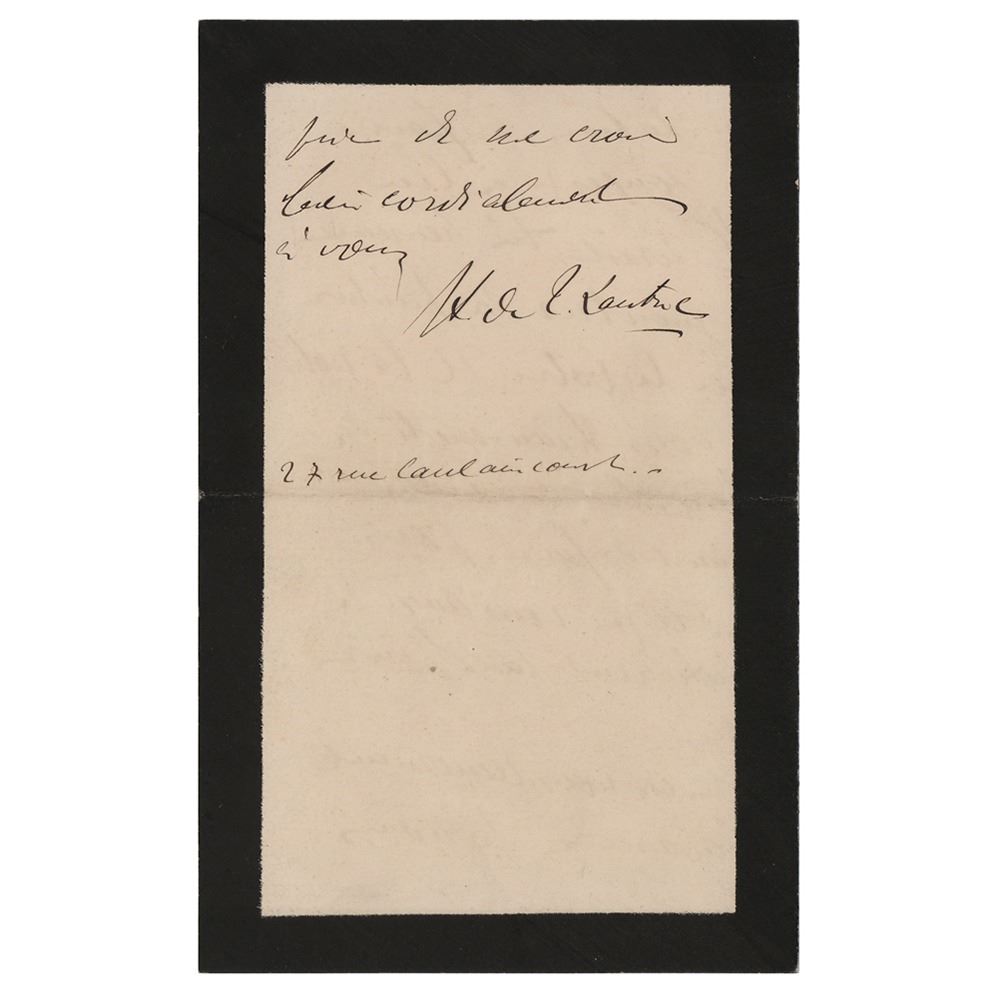 prie de me croire
bien cordialement
à vous
H. de T. Lautrec
27 rue Caulaincourt.